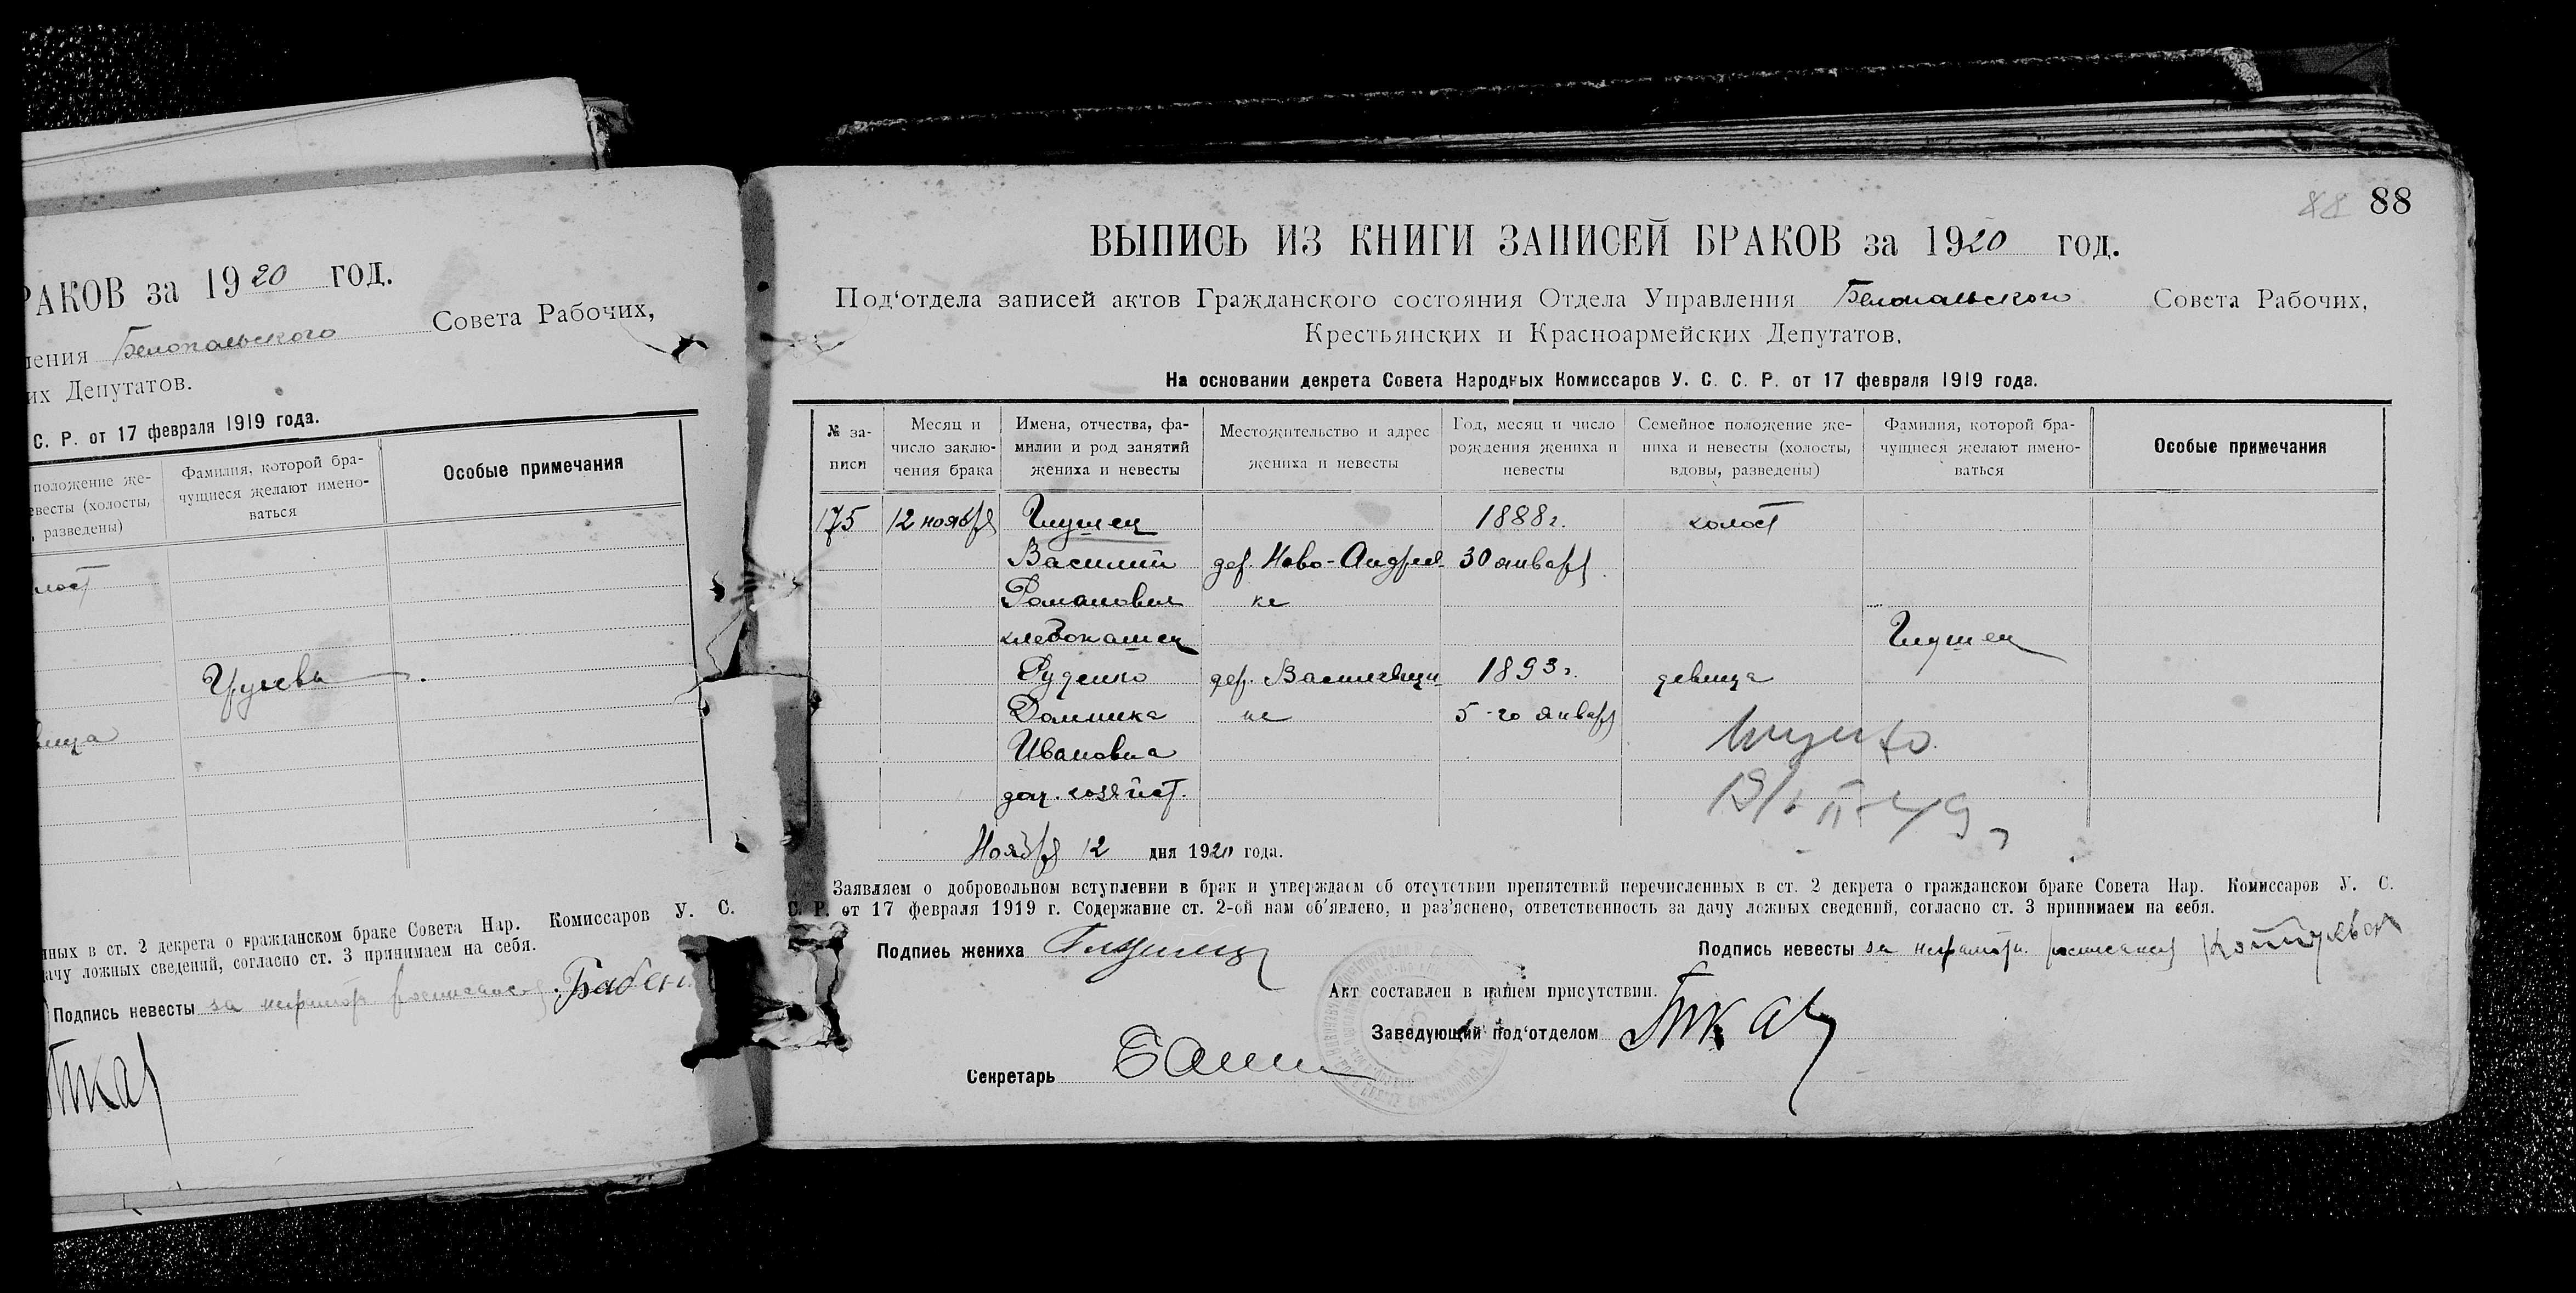 РАКОВ за 1920 год.
ления Белопольского Совета Рабочих,
их Депутатов.
С. Р. от 17 февраля 1919 года.
положение же-
евесты (холосты,
, разведены)
Фамилия, которой бра-
чущиеся желают имено-
ваться
Особые примечания
лост
вица
нных в ст. 2 декрета о гражданском браке Совета Нар. Комиссаров У. С.
ачу ложных сведений, согласно ст. 3 принимаем на себя.
Подпись невесты за неграмотн расписался
88 88
ВЫПИСЬ ИЗ КНИГИ ЗАПИСЕЙ БРАКОВ за 1920 год.
Под‘отдела записей актов Гражданского состояния Отдела Управления Белопольского Совета Рабочих,
Крестьянских и Красноармейских Депутатов.
На основании декрета Совета Народных Комиссаров У. С. С. Р. от 17 февраля 1919 года.
№ за-
писи
Месяц и
число заклю-
чения брака
Имена, отчества, фа-
милии и род занятий
жениха и невесты
Местожительство и адрес
жениха и невесты
Год, месяц и число
рождения жениха и
невесты
Семейное положение же-
ниха и невесты (холосты,
вдовы, разведены)
Фамилия, которой бра-
чущиеся желают имено-
ваться
Особые примечания
175 12 ноября Глушец 1888 г. холост
Василий дер. Ново-Андрее- 30 января
Романович ке
хлебопашец Глушец
Руденко дер. Василевщи- 1893 г. девица
Домника не 5-го января
Ивановна
дом. хозяйст.
Ноября 12 дня 1920 года.
Заявляем о добровольном вступлении в брак и утверждаем об отсутствии препятствий перечисленных в ст. 2 декрета о гражданском браке Совета Нар. Комиссаров У. С.
С. Р. от 17 февраля 1919 г. Содержание ст. 2-ой нам об‘явлено, и раз‘яснено, ответственность за дачу ложных сведений, согласно ст. 3 принимаем на себя.
Подпись жениха Глушец Подпись невесты за неграмотн. расписался
Акт составлен в нашем присутствии.
Заведующий под‘отделом
Секретарь